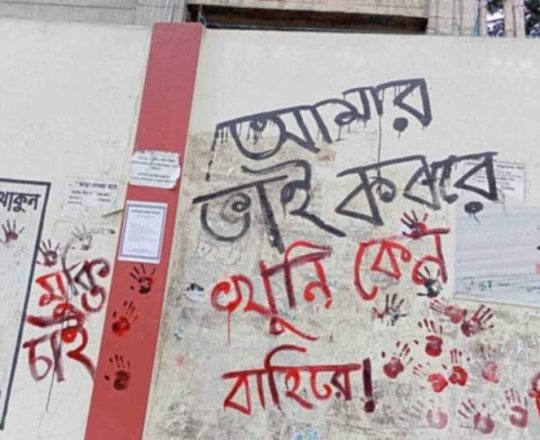 থাকুন
মুক্তি
চাই
আমার
ভাই কবরে
খুনি কেন
বাহিরে!